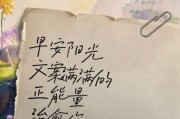 早安阳光
文案满满的
正能量
治愈你